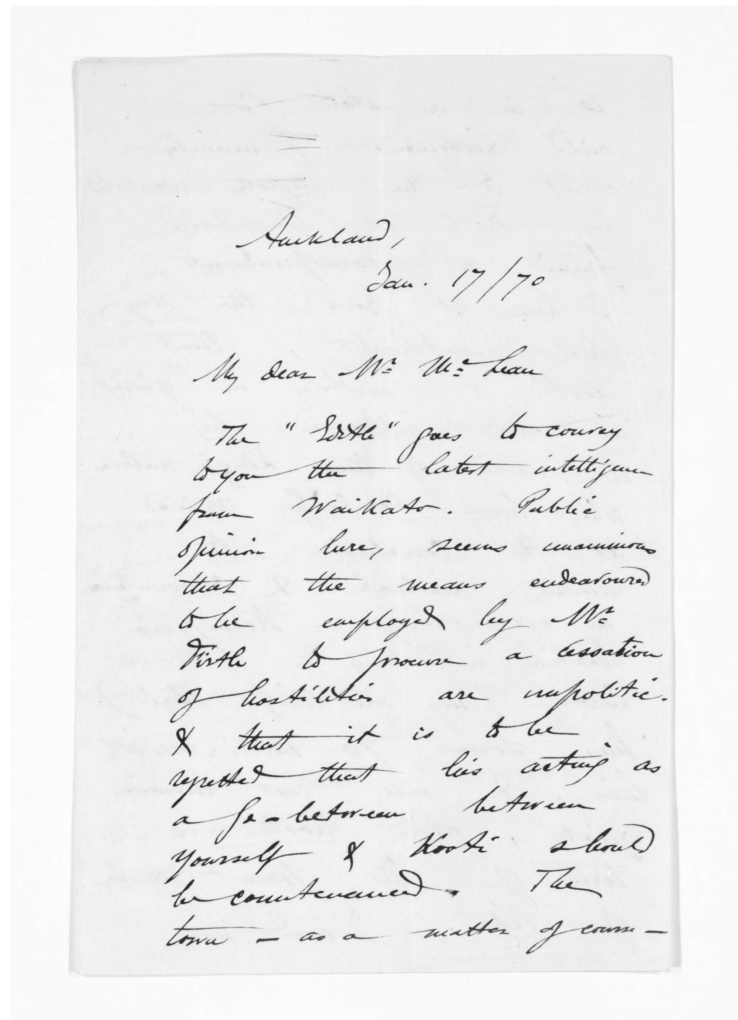 Auckland,
Jan. 17/70
My dear Mr. McLean
The "Edith" goes to convey
to you the latest intelligence
from Waikato. Public
opinion here, seems unanimous
that the means endeavoured
to be employed by Mr.
Firth to procure a cessation
of hostilities are impolitic.
& that it is to be
regretted that his acting as
a go-between between
yourself & Kooti should
be countenanced. The
town – as a matter of course –